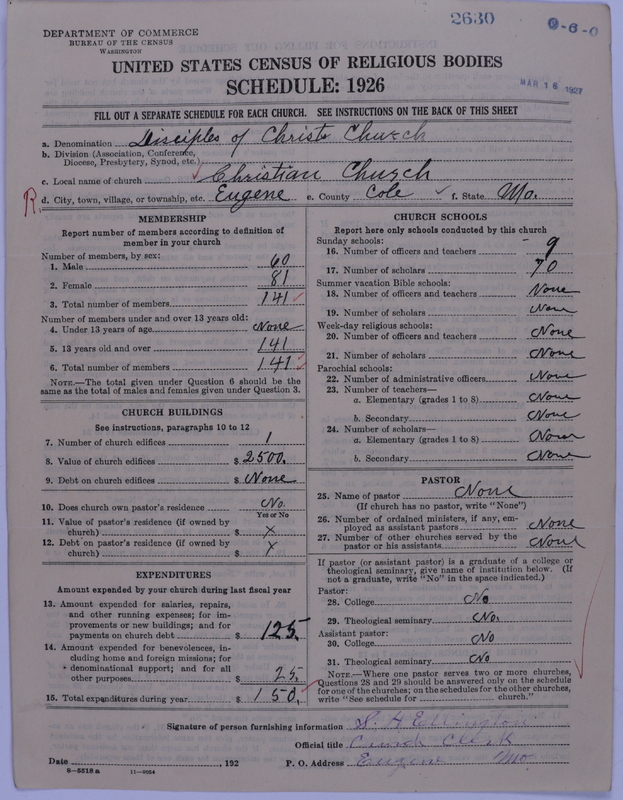 2630
DEPARTMENT OF COMMERCE
BUREAU OF THE CENSUS
WASHINGTON
MAR 16 1927
UNITED STATES CENSUS OF RELIGIOUS BODIES
SCHEDULE: 1926
FILL OUT A SEPARATE SCHEDULE FOR EACH CHURCH. SEE INSTRUCTIONS ON THE BACK OF THIS SHEET
a. Denomination Disciples of Christ Church
b. Division (Association, Conference, Diocese, Presbytery, Synod, etc.)
c. Local name of church Christian Church
R. d. City, town, village, or township, etc. Eugene e. County Cole f. State Mo.
MEMBERSHIP
Report number of members according to definition of
member in your church
Number of members, by sex:
1. Male 60
2. Female 81
3. Total number of members 141
Number of members under and over 13 years old:
4. Under 13 years of age None
5. 13 years old and over 141
6. Total number of members 141
NOTE.—The total given under Question 6 should be
same as the total of males and females given under Question 3.
CHURCH BUILDINGS
See instructions, paragraphs 10 to 12
7. Number of church edifices 1
8. Value of church edifices $ 2500.
9. Debt on church edifices $ None
10. Does church own pastor's residence No.
Yes or No
11. Value of pastor's residence (if owned by
church) $ X
12. Debt on pastor's residence (if owned by
church) $ X
EXPENDITURES
Amount expended by your church during last fiscal year
13. Amount expended for salaries, repairs,
and other running expenses; for im-
provements or new buildings; and for
payments on church debt $ 125.
14. Amount expended for benevolences, in-
cluding home and foreign missions; for
denominational support; and for all
other purposes $ 25.
15. Total expenditures during year $ 150.
CHURCH SCHOOLS
Report here only schools conducted by this church
Sunday schools:
16. Number of officers and teachers 9
17. Number of scholars 70
Summer vacation Bible schools:
18. Number of officers and teachers None
19. Number of scholars None
Week-day religious schools:
20. Number of officers and teachers None
21. Number of scholars None
Parochial schools:
22. Number of administrative officers None
23. Number of teachers—
a. Elementary (grades 1 to 8) None
b. Secondary None
24. Number of scholars—
a. Elementary (grades 1 to 8) None
b. Secondary None
PASTOR
25. Name of pastor None
(If church has no pastor, write "None")
26. Number of ordained ministers, if any, em-
ployed as assistant pastors None
27. Number of other churches served by the
pastor or his assistants None
If pastor (or assistant pastor) is a graduate of a college or
theological seminary, give name of institution below. (If
not a graduate, write "No" in the space indicated.)
Pastor:
28. College No
29. Theological seminary No.
Assistant pastor:
30. College No
31. Theological seminary No
NOTE.—Where one pastor serves two or more churches,
Questions 28 and 29 should be answered only on the schedule
for one of the churches; on the schedules for the other churches,
write "See schedule for church."
Signature of person furnishing information
Official title Church Clerk
Date , 192 P. O. Address Eugene Mo
8-5518 a 11-9064